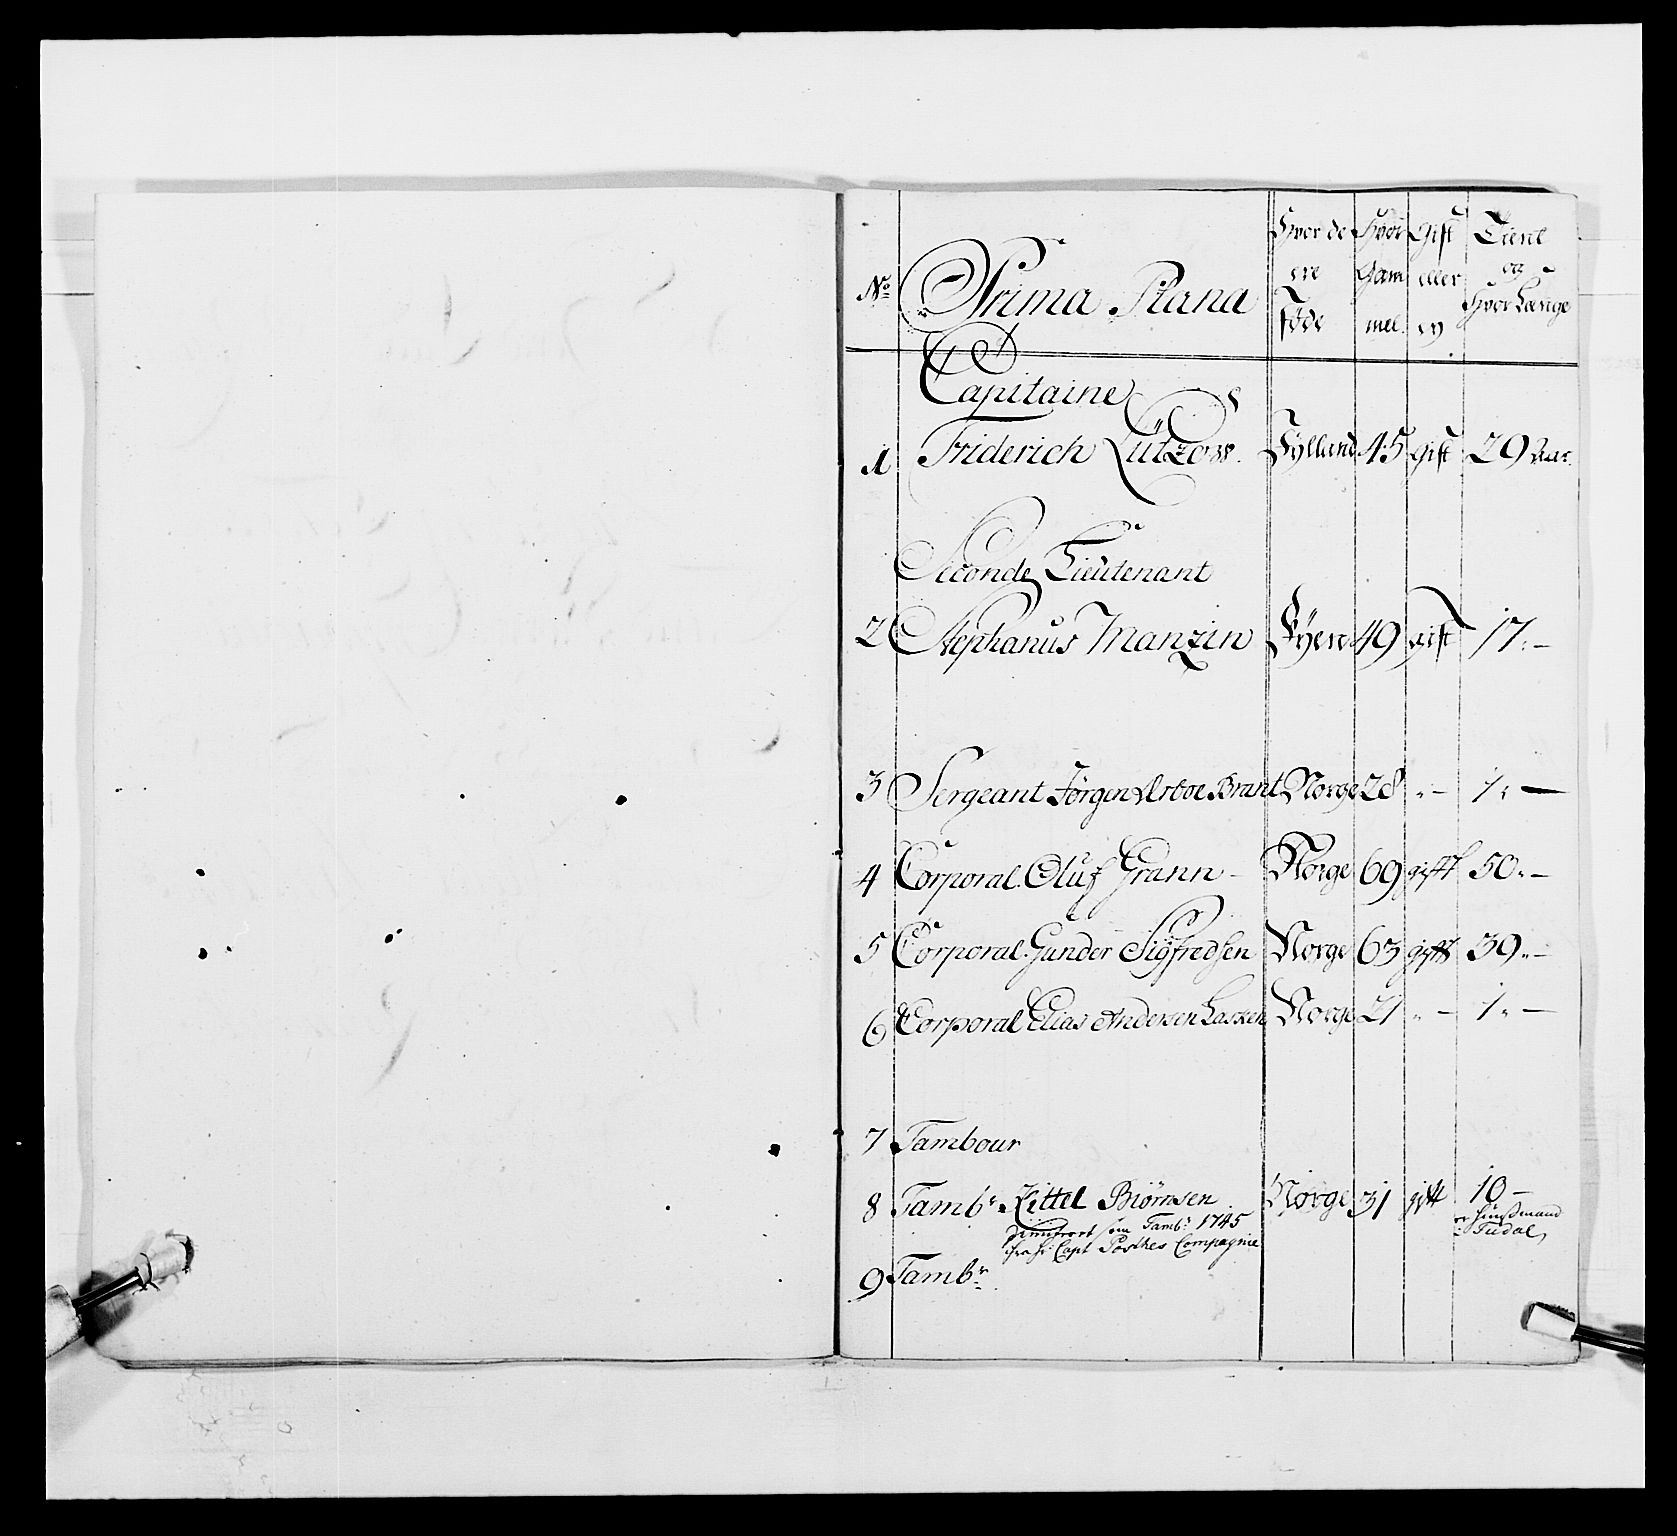 No Prima Plana Hvor de ere føde Hvor Gam mel. Gift eller ey Tient og Hvor Længe
Capitaine
1 Friderich Lützow. Jylland 45 gift 29 Aar.
Seconde Lieutenant
2 Stephanus Manzin Fyen 49 gift 17.–
3 Sergeant Jørgen Brant Norge 28 „ – 7 „ –
4 Corporal. Oluf Grann – Norge 69 gift 50 „ –
5 Corporal. Gunder Sigfredsen Norge 63 gift 39 „ –
6 Corporal Elias Andersen Norge 21 „ – 1 „ –
7 Tambour
8 Tambr. Kittel Biörnsen Norge 31 gift 10 –
som Tambr. 1745 er Huusmand
fra Hr: Capt Compagnie Tudal,
9 Tambr.